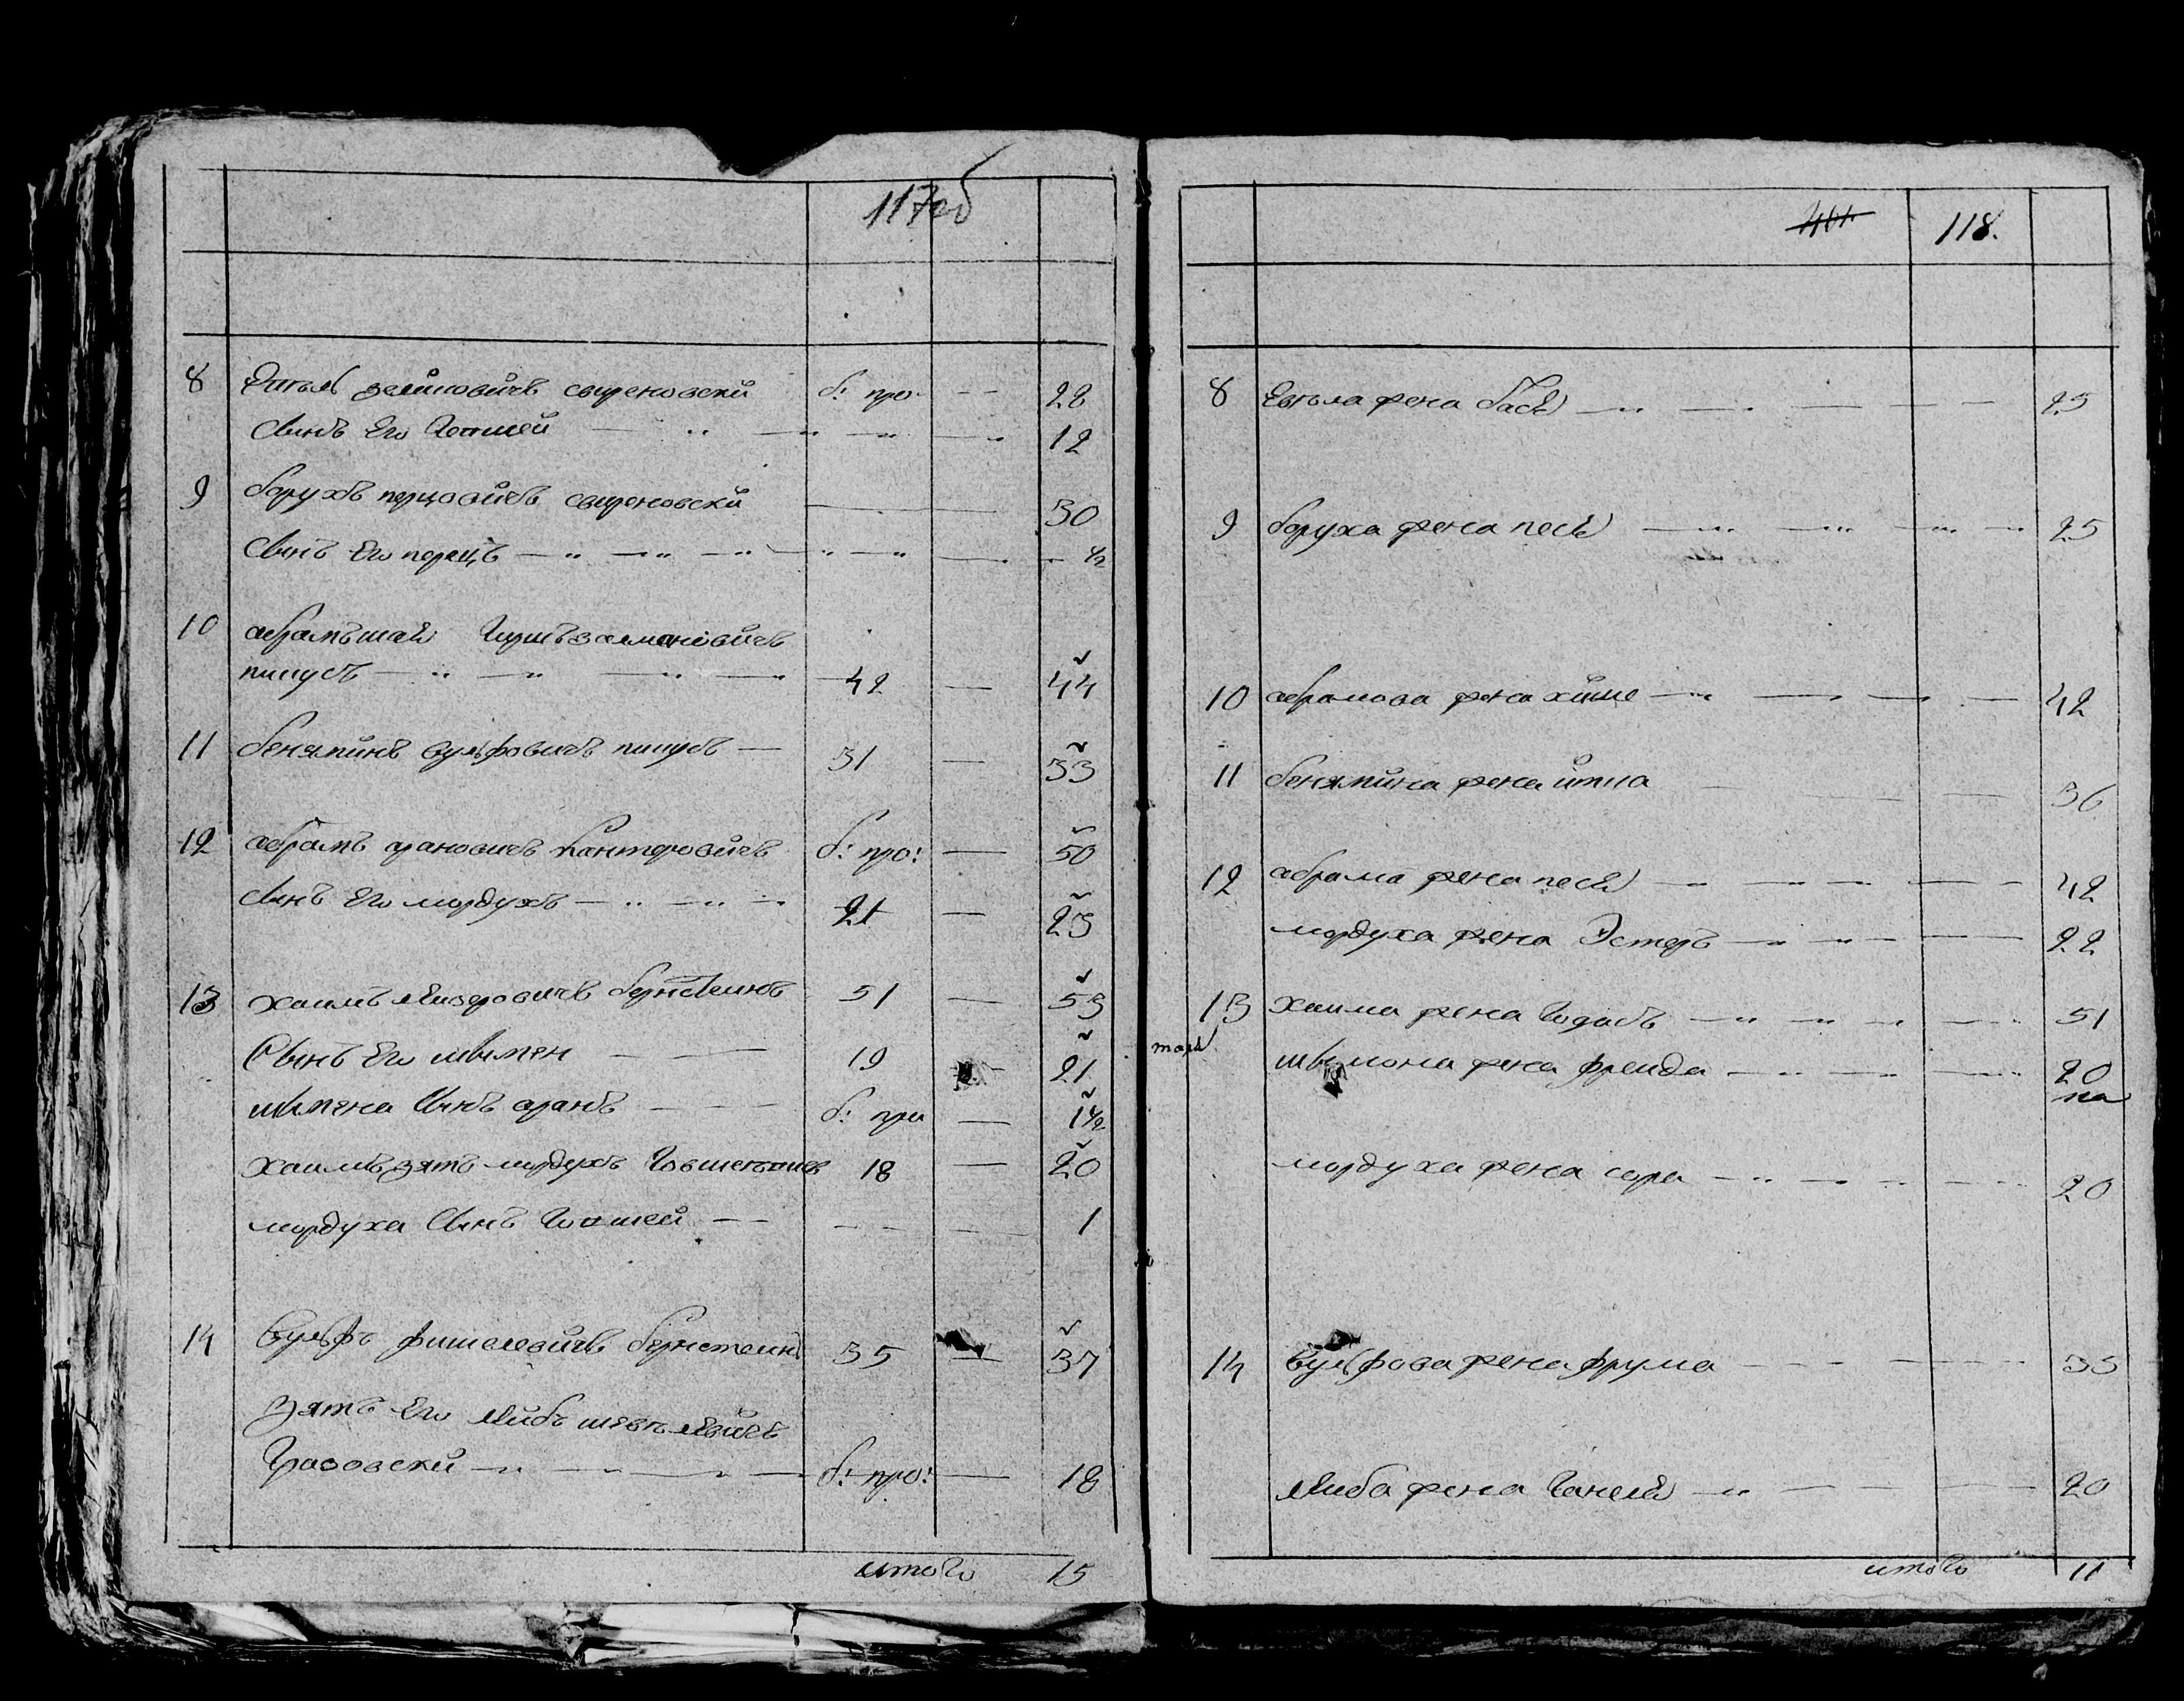 117об
8 зеликовичъ свиреновски б: про — 28
Сынъ Его Иошей — — — — 12
9 борухъ перцовичъ свиреновски — — 30
Сынъ Его перецъ — — — — — ½
10 абрамъшая Гиршъзалмановичъ
пинусъ — — — — 42 — 44
11 беняминъ вульфовичъ пинусъ — 31 — 33
12 абрамъ ароновичъ Канторовичъ б: про: — 50
Сынъ Его мордухъ — — — 21 — 23
13 хаимъ лизеровичъ бернстеинъ 51 — 53
Сынъ Его шлимен — — 19 — 21
шлимена Сынъ аранъ — — б: про — 1½
хаимъ зятъ мордухъ 18 — 20
мордуха Сынъ Иошей — — — — 1
14 Вульфъ фишелевичъ бернстеинъ 35 — 37
Зятъ Его Лейбъ
б: про: — 18
итого 15
401. 118.
8 жена бася — — — — 25
9 боруха жена песя — — — — 25
10 абрамова жена хише — — — — 42
11 бенямина жена итка — — — 36
12 абрама жена песя — — — — 42
мордуха жена Эстеръ — — — — 22
13 хаима жена Годасъ — — — — 51
жена фреида — — — — 20
мордуха жена сора — — — — 20
14 Вульфова жена фрума — — — 35
Лейба жена Ганеля — — — — 20
итого 11